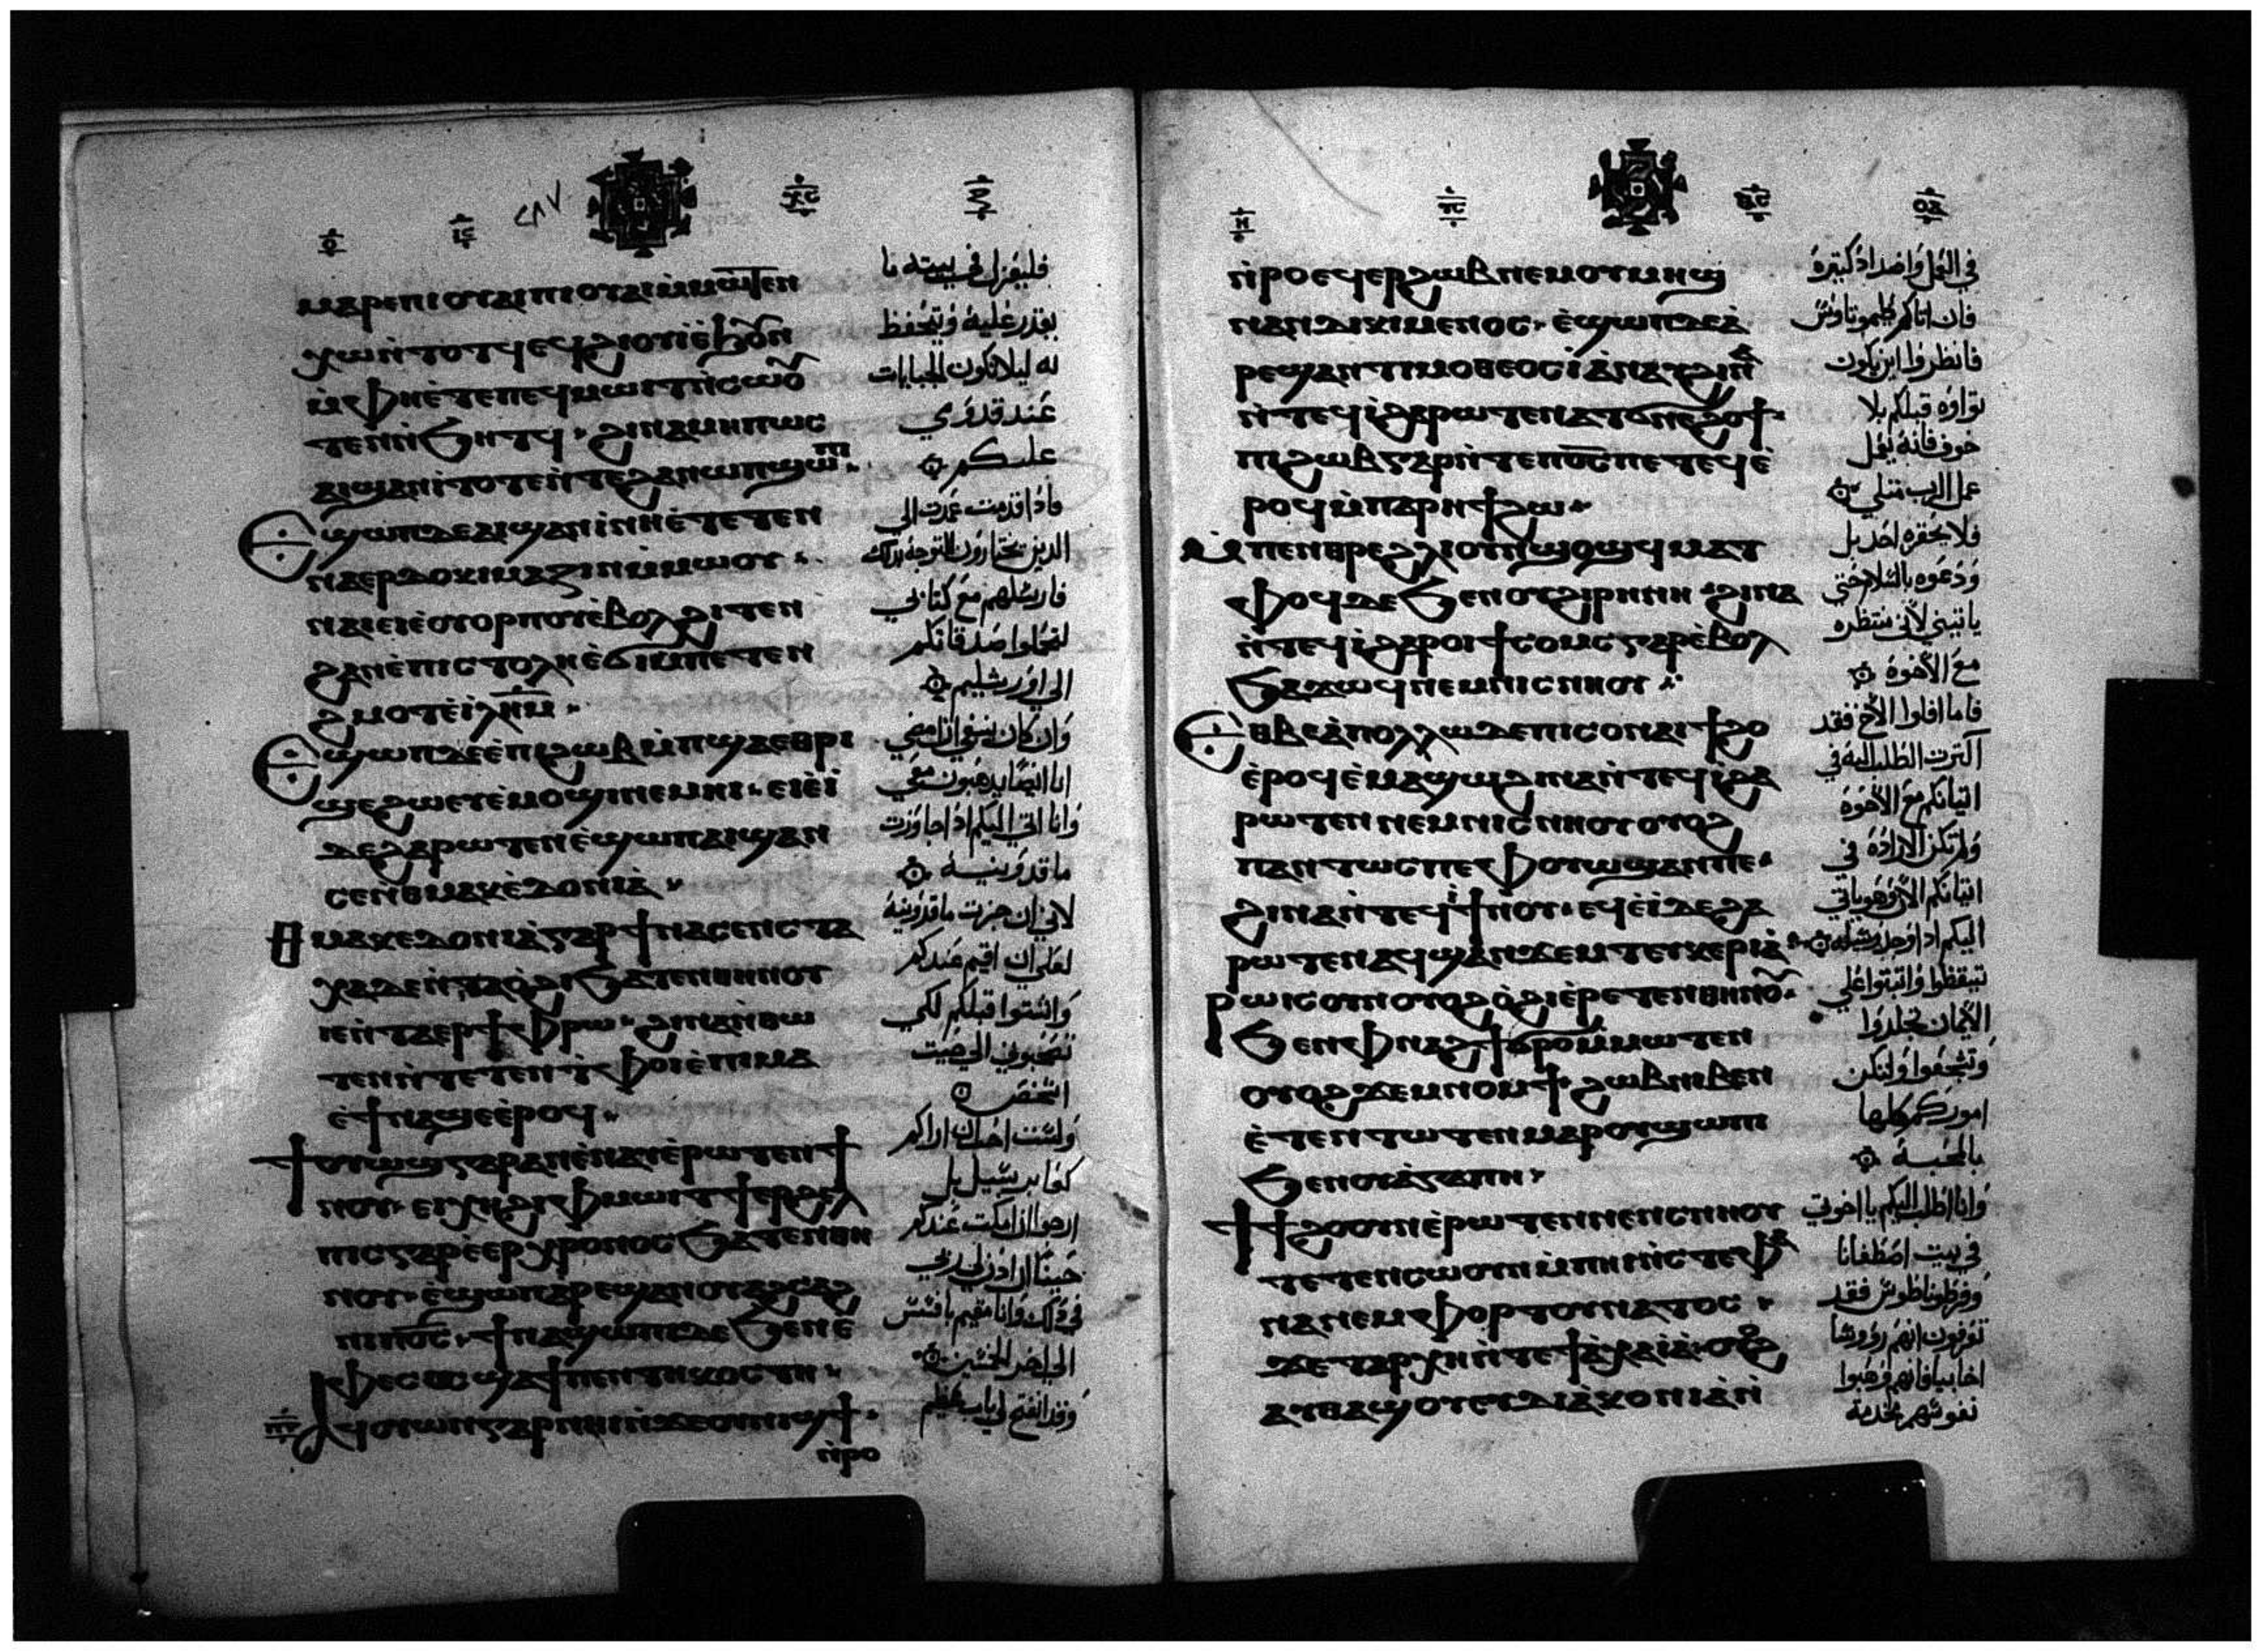 ⲙⲁⲣⲉⲡⲓⲟⲩⲁⲓⲡⲓⲟⲩⲁⲓⲙⲙⲱⲧⲉⲛ
ⲭⲱⲛ̀ⲧⲟⲧϥⲉϥϩⲓⲟⲩⲓⲉ̀ϧⲟⲩⲛ
ⲙ̀ⲫⲏⲉ̀ⲧⲉⲡⲉϥⲙⲱⲓⲧⲛ̀ⲥⲱⲟⲩ
ⲧⲉⲛⲛ̀ϧⲏⲧϥ ϩⲓⲛⲁⲙⲏⲡⲱⲥ
ⲁⲓϣⲁⲛⲓ̀ⲧⲟⲧⲉⲛ̀ⲧⲉϩⲁⲛⲱⲡϣⲱⲡⲓ
ⲉϣⲱⲡⲇⲉⲁⲓϣⲁⲛⲓ̀ⲛⲏⲉ̀ⲧⲉⲧⲉⲛ
ⲛⲁⲉⲣⲇⲟⲕⲓⲙⲁⲍⲓⲛⲙ̀ⲙⲱⲟⲩ
ⲛⲁⲓⲉⲓⲉ̀ⲟⲩⲟⲣⲡⲟⲩⲉ̀ⲃⲟⲗϩⲓⲧⲉⲛ
ϩⲁⲛⲉ̀ⲡⲓⲥⲧⲟⲗⲏⲉ̀ϭⲓⲙ̀ⲡⲉⲧⲉⲛ
ϩⲙⲟⲧⲉ̀ⲓⲗⲏⲙ
ⲉϣⲱⲡⲇⲉⲉ̀ⲡⲓϩⲱⲃⲙ̀ⲡϣⲁⲉⲑⲣⲓ
ϣⲉϩⲱⲉⲩⲉ̀ⲙⲟϣⲓⲛⲉⲙⲏⲓ ⲉⲓⲉ̀ⲓ̀
ⲇⲉϩⲁⲣⲱⲧⲉⲛⲉ̀ϣⲱⲡⲁⲓϣⲁⲛ
ⲥⲉⲛⲑⲙⲁⲕⲉ̀ⲇⲟⲛⲓⲁ̀
ⲑⲙⲁⲕⲉⲇⲟⲛⲓⲁ̀ⲅⲁⲣϯⲛⲁⲥⲉⲛⲥⲧⲁ
ⲭⲁⲇⲉⲛ̀ⲧⲁⲟ̀ϩⲓϧⲁⲧⲉⲛⲑⲏⲛⲟⲩ
ⲓⲉⲛ̀ⲧⲁⲉⲣϯⲫⲣⲱ ϩⲓⲛⲁⲛ̀ⲑⲱ
ⲧⲉⲛⲛ̀ⲧⲉⲧⲉⲛⲧ̀ⲫⲟⲓⲉ̀ⲡⲓⲙⲁ
ⲉ̀ϯⲛⲁϣⲉⲉ̀ⲣⲟϥ
ϯⲟⲩⲱϣⲅⲁⲣⲁⲛⲉ̀ⲛⲁⲩⲉ̀ⲣⲱⲧⲉⲛϯ
ⲛⲟⲩ ⲉⲓⲭⲏϩⲓⲫⲙⲱⲓⲧ ϯⲉⲣϩⲉⲗ
ⲡⲓⲥⲅⲁⲣⲉ̀ⲉⲣⲭⲣⲟⲛⲟⲥϧⲁⲧⲉⲛⲑⲏ
ⲛⲟⲩ ⲉ̀ϣⲱⲡⲁⲣⲉϣⲁⲛⲟⲩⲁϩⲥⲁϩ
ⲛⲓⲡⲟ̅ⲥ̅ ϯⲛⲁϣⲱⲡⲓⲇⲉϧⲉⲛⲉ
ⲫⲉⲥⲟⲥϣⲁϯⲡⲉⲛⲧⲏⲕⲟⲥⲧⲏ
ⲁϥⲟⲩⲱⲛⲅⲁⲣⲛⲏⲓⲛ̀ϫⲉⲟⲩⲛⲓϣϯ
ⲛ̀ⲣⲟ
فليعزل في بيته ما
يقدر عليه ويتحفظ
به ليلا تكون الجبايات
عند قدومي
عليكم
فاذا قدمت عمدت الى
الذين تختارون لتوجه بذلك
فارسلهم مع كتابي
لتحملوا صدقاتكم
الى اورشليم
وان كان ينبغي ان امضي
انا ايضا يذهبون معي
وانا اتي اليكم اذا جاوزت
ماقدونيه
لاني ان جزت ماقدونيه
لعلي ان اقيم عندكم
واشتوا قبلكم لكي
تصحبوني الى حيث
اشخص
ولست احب ان اراكم
كعابر سبيل بل
ارجوا ان امكث عندكم
حينا ان اذن لي ربي
في ذلك وانا مقيم بافسس
الى اخر الخمسين
وقد انفتح لي باب عظيم
ⲛ̀ⲣⲟⲉϥⲉⲣϩⲱⲃⲛⲉⲙⲟⲩⲙⲏϣ
ⲛⲁⲛⲇⲓⲕⲓⲙⲉⲛⲟⲥ ⲉ̀ϣⲱⲡⲇⲉⲁ̀
ⲣⲉϣⲁⲛⲧⲓⲙⲟⲑⲉⲟⲥⲓ̀ⲁ̀ⲛⲁⲩϩⲓⲛⲁ
ⲛ̀ⲧⲉϥⲓ̀ϩⲁⲣⲱⲧⲉⲛⲁⲧϭⲛⲉϩⲟϯ
ⲡⲓϩⲱⲃⲅⲁⲣⲛ̀ⲧⲉⲡⲟ̅ⲥ̅ⲡⲉⲧⲉϥⲉ̀
ⲣⲟϥⲙ̀ⲡⲁⲣⲏϯϩⲱ
ⲙ̀ⲡⲉⲛⲑⲣⲉϩⲗⲓⲟⲩⲛϣⲟϣϥ ⲙⲁⲧ
ⲫⲟϥⲇⲉϧⲉⲛⲟⲩϩⲓⲣⲏⲛⲏ ϩⲓⲛⲁ
ⲛ̀ⲧⲉϥⲓ̀ϩⲁⲣⲟⲓϯⲥⲟⲙⲥⲅⲁⲣⲉ̀ⲃⲟⲗ
ϧⲁϫⲱϥⲛⲉⲙⲛⲓⲥⲛⲏⲟⲩ
ⲉⲑⲃⲉⲁ̀ⲡⲟⲗⲗⲱⲇⲉⲡⲓⲥⲟⲛⲁⲓϯϩⲟ
ⲉ̀ⲣⲟϥⲉ̀ⲙⲁϣⲱϩⲓⲛⲁⲛ̀ⲧⲉϥⲓ̀ϩⲁ
ⲣⲱⲧⲉⲛⲛⲉⲙⲛⲓⲥⲛⲏⲟⲩⲟⲩⲟϩ
ⲡⲁⲛⲧⲱⲥⲡⲉⲫⲟⲩⲱϣⲁⲛⲡⲉ
ϩⲓⲛⲁⲛ̀ⲧⲉϥⲓ̀ϯⲛⲟⲩ ⲉϥⲉ̀ⲓ̀ⲇⲉϩⲁ
ⲣⲱⲧⲉⲛⲁϥϣⲁⲛϫⲉⲙⲧⲉⲩⲕⲉⲣⲓⲁ̀
ⲣⲱⲓⲥⲟⲩⲛⲟⲩⲟϩⲟ̀ϩⲓⲉ̀ⲣⲉⲧⲉⲛⲑⲏⲛⲟⲩ
ϧⲉⲛⲫⲛⲁϩϯϭⲣⲟⲙ̀ⲙⲱⲧⲉⲛ
ⲟⲩⲟϩϫⲉⲙⲛⲟⲙϯ ϩⲱⲃⲛⲓⲃⲉⲛ
ⲉ̀ⲧⲉⲛⲧⲱⲧⲉⲛⲙⲁⲣⲟⲩϣⲱⲡⲓ
ϧⲉⲛⲟⲩⲁ̀ⲅⲁⲡⲏ
ϯϯϩⲟⲟⲩⲛⲉ̀ⲣⲱⲧⲉⲛⲛⲉⲛⲥⲛⲏⲟⲩ
ⲧⲉⲧⲉⲛⲥⲱⲟⲩⲛⲙ̀ⲡⲏⲓⲛ̀ⲥⲧⲉⲫⲁ
ⲛⲁⲛⲉⲙⲫⲟⲣⲧⲟⲩⲛⲁⲧⲟⲥ
ϫⲉⲧⲁⲣⲭⲏⲛ̀ⲧⲉϯⲁ̀ⲭⲁⲓⲁ̀ ⲟⲩⲟϩ
ⲁⲩⲑⲁϣⲟⲩⲉⲩⲇⲓⲁ̀ⲕⲟⲛⲓⲁ̀ⲛ̀
في العمل واضداد كثيرة
فان اتاكم طيموتاوس
فانظروا اين يكون
ثواؤه قبلكم بلا
خوف فانه يعمل
عمل الرب مثلي
فلا يحقره احد بل
ودعوه بالسلام حتى
ياتيني لأني منتظره
مع الأخوة
فاما افلوا الأخ فقد
اكثرت الطلب اليه في
اتيانكم مع الأخوة
ولم تكن الارادة في
اتيانكم الان وهو ياتي
تيقظوا واثبتوا على
الأيمان تجلدوا
وتشجعوا ولتكن
اموركم كلها
بالمحبة
وانا اطلب اليكم يا اخوتي
في بيت اصطفانا
وفرطوناطوس فقد
تعرفون انهم رؤوسا
نفوسهم بخدمة